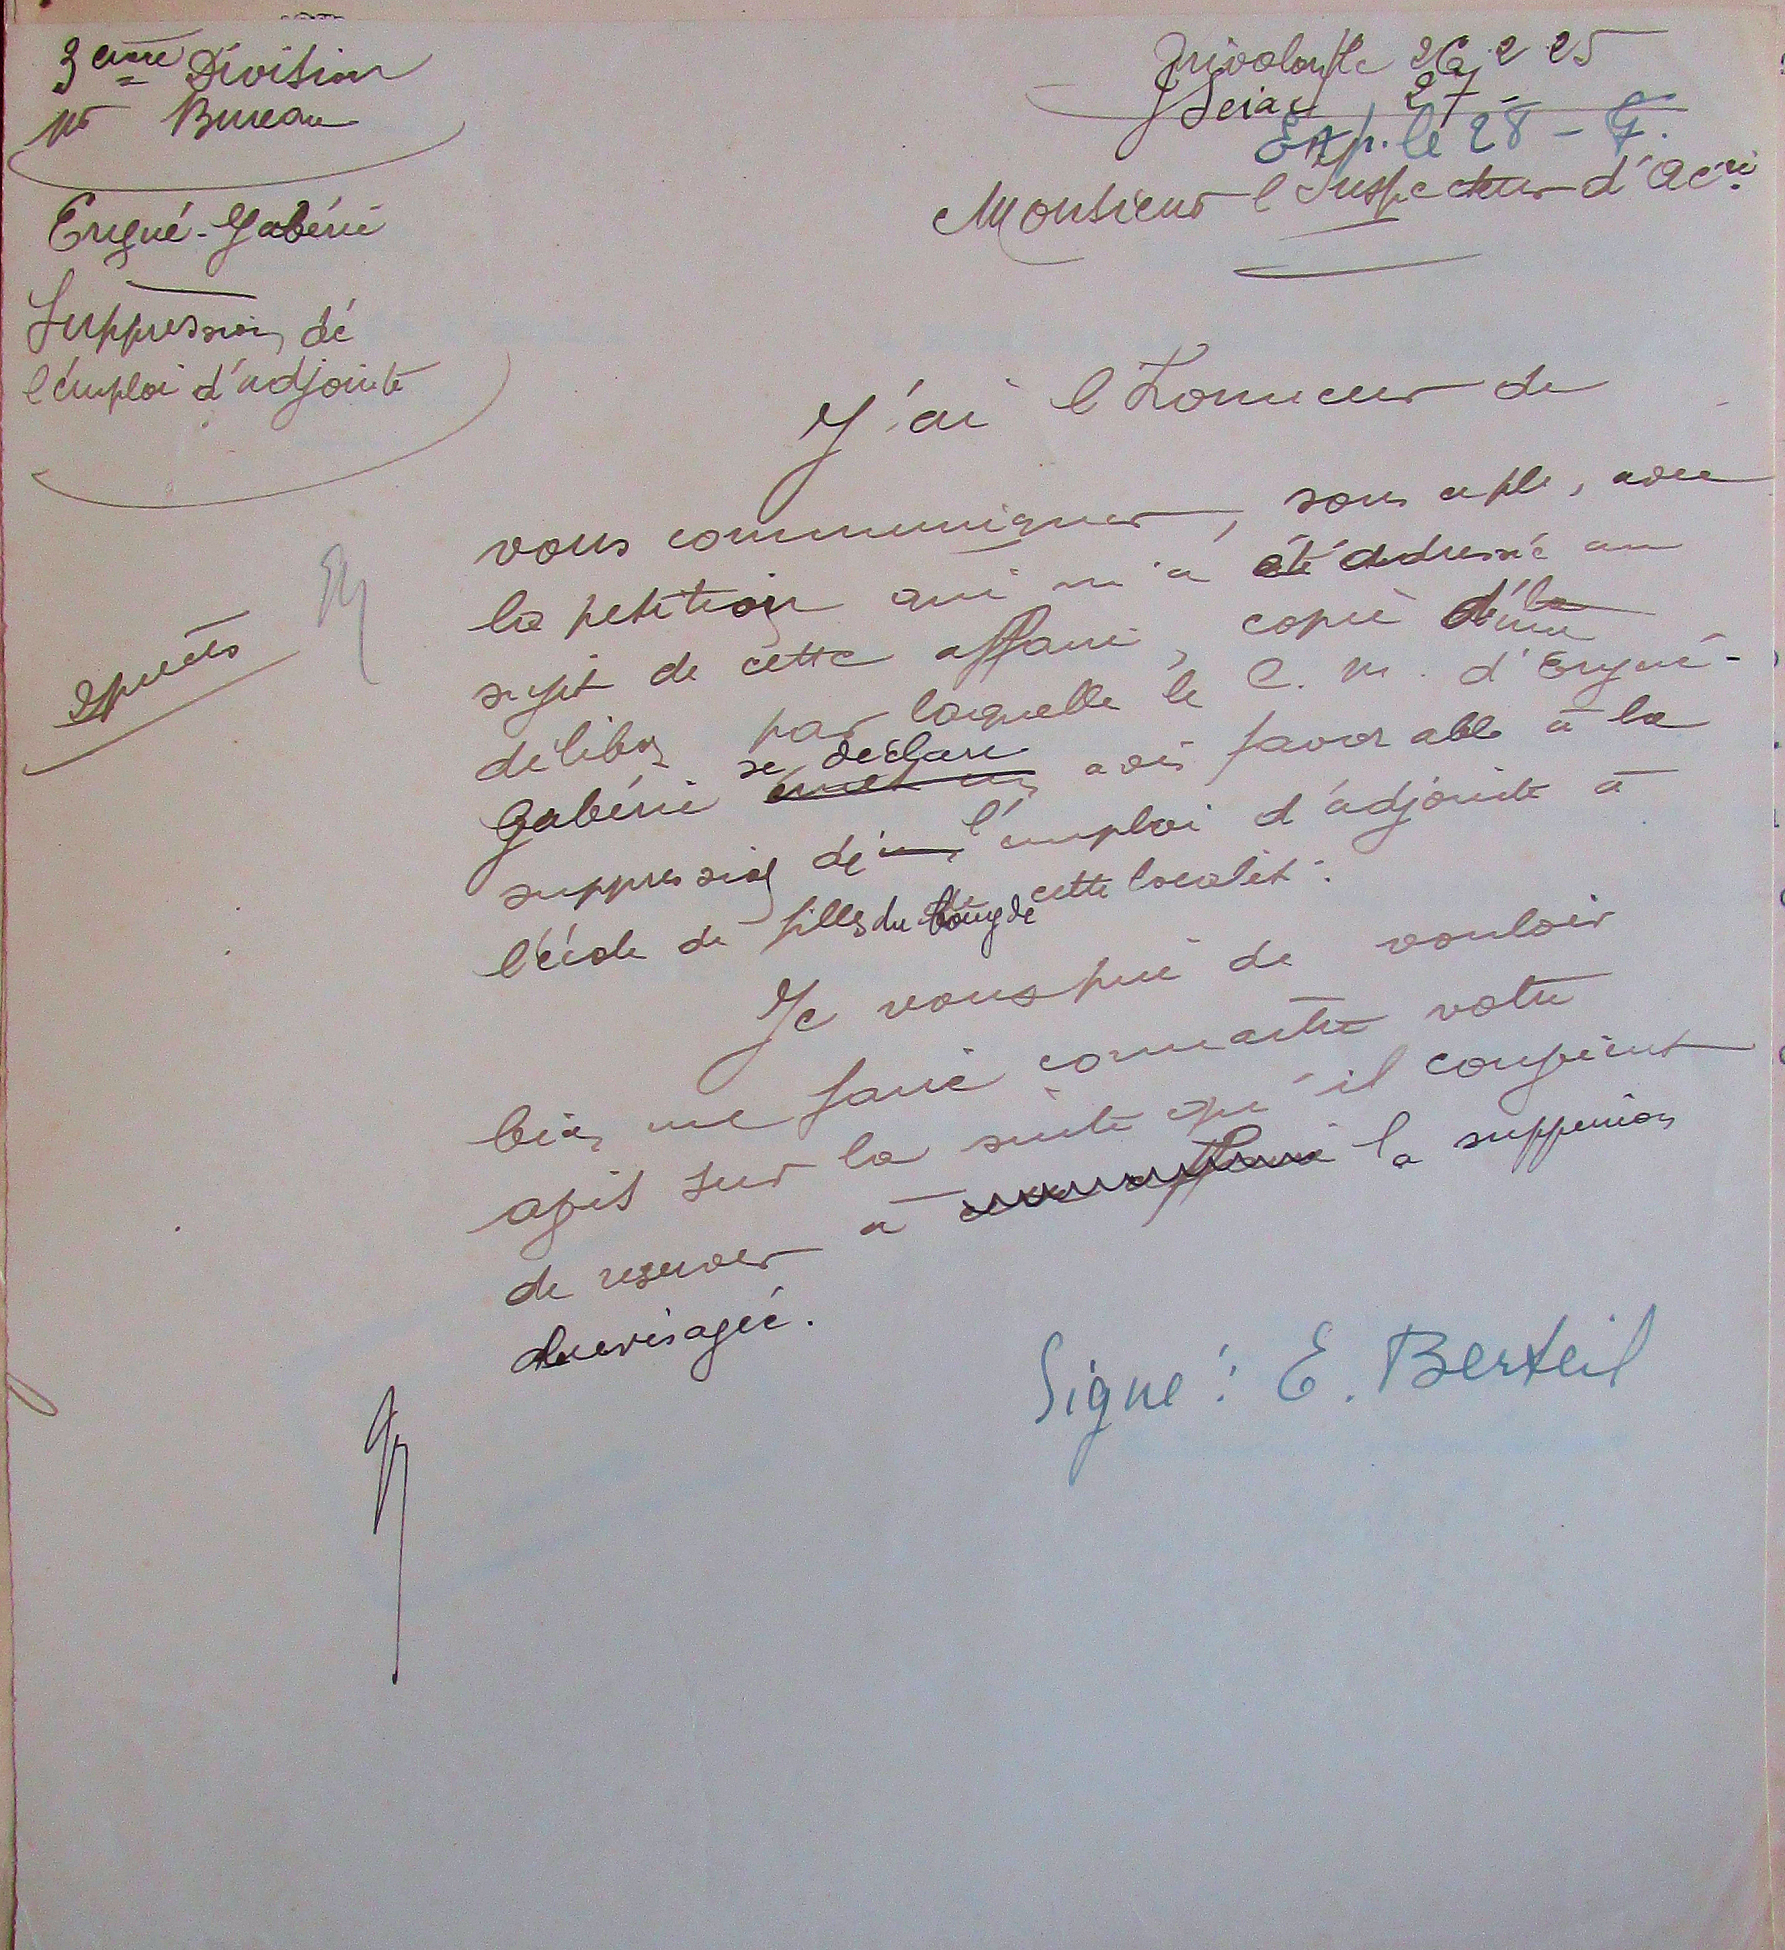 3eme Division
1er Bureau
Ergué-Gabéric
Suppression de
l'emploi d'adjointe
26 2 25
27
Exp. le 28 - 
Monsieur l'Inspecteur d'Acie
J'ai l'honneur de
vous communiquer, sous ce pli, avec
la petition qui m'a été adressée au
sujet de cette affaire, copie de la d'une
délibon par laquelle le C. M. d'Ergué-
Gabéric émet un se déclare avis favorable à la
suppression de l'emploi d'adjointe à
l'école de filles du bourg de cette localité.
Je vous prie de vouloir
bien me faire connaître votre
avis sur la suite qu'il convient
de reserver à la suppression
envisagée.
Signé : E. Berteil